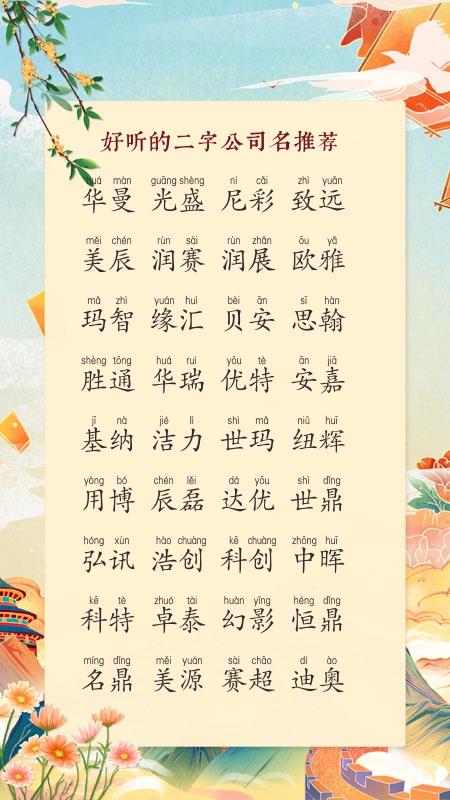 好听的二字公司名推荐
huá màn guāng shèng ní cǎi zhì yuǎn
华曼 光盛 尼彩 致远
měi chén rùn sài rùn zhǎn ōu yǎ
美辰 润赛 润展 欧雅
mǎ zhì yuán huì bèi ān sī hàn
玛智 缘汇 贝安 思翰
shèng tōng huá ruì yōu tè ān jiā
胜通 华瑞 优特 安嘉
jī nà jié lì shì mǎ niǔ huī
基纳 洁力 世玛 纽辉
yòng bó chén lěi dá yōu shì dǐng
用博 辰磊 达优 世鼎
hóng xùn hào chuàng kē chuàng zhōng huī
弘讯 浩创 科创 中晖
kē tè zhuó tài huàn yǐng héng dǐng
科特 卓泰 幻影 恒鼎
míng dǐng měi yuán sài chāo dí ào
名鼎 美源 赛超 迪奥